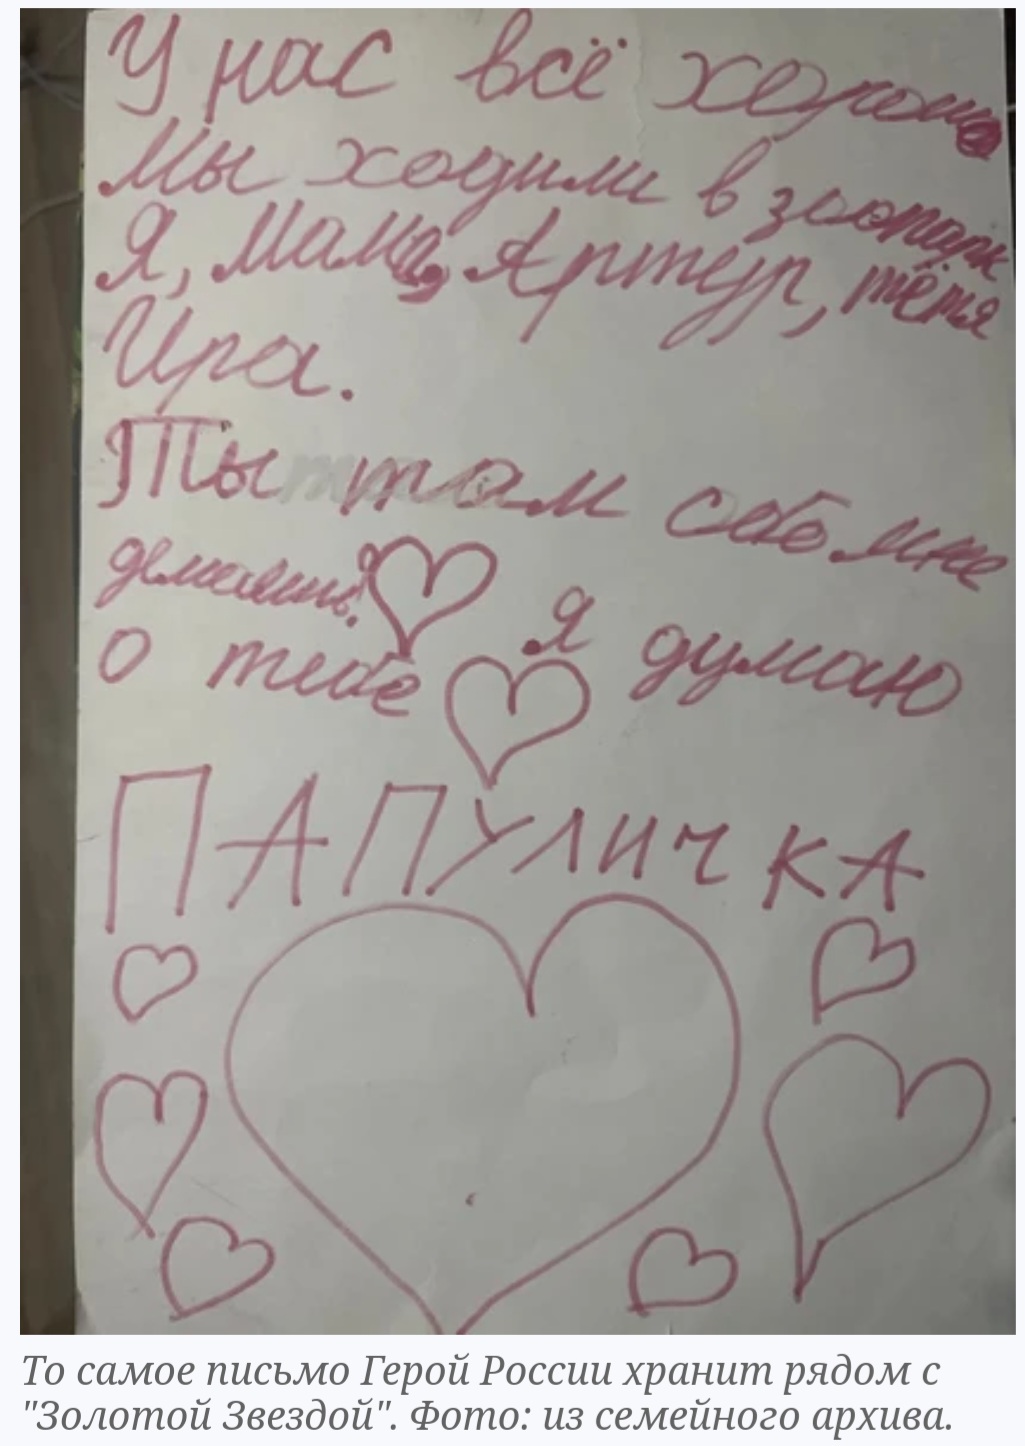 У нас всё хорошо
Мы ходили в зоопарк
Я, Мама, Артур, тётя
Ира.
Ты там обо мне
думаешь? Я думаю
о тебе
ПАПУЛИЧКА
То самое письмо Герой России хранит рядом с
"Золотой Звездой". Фото: из семейного архива.